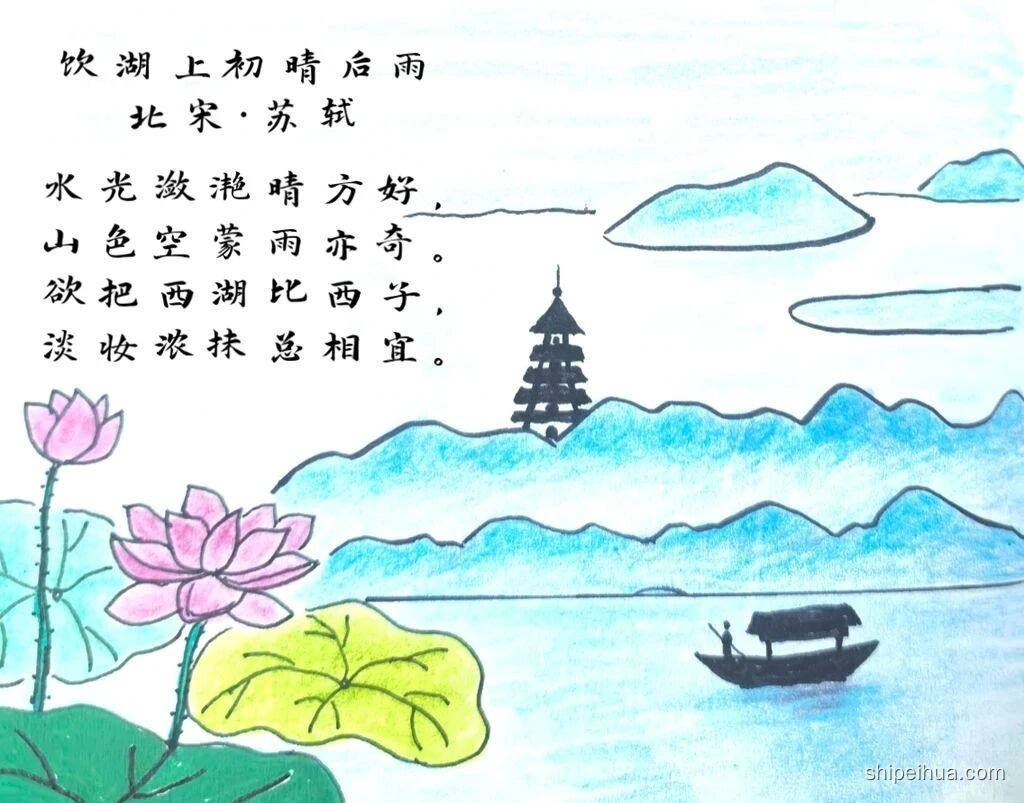 饮湖上初晴后雨
北宋·苏轼
水光潋滟晴方好，
山色空蒙雨亦奇。
欲把西湖比西子，
淡妆浓抹总相宜。
shipeihua.com